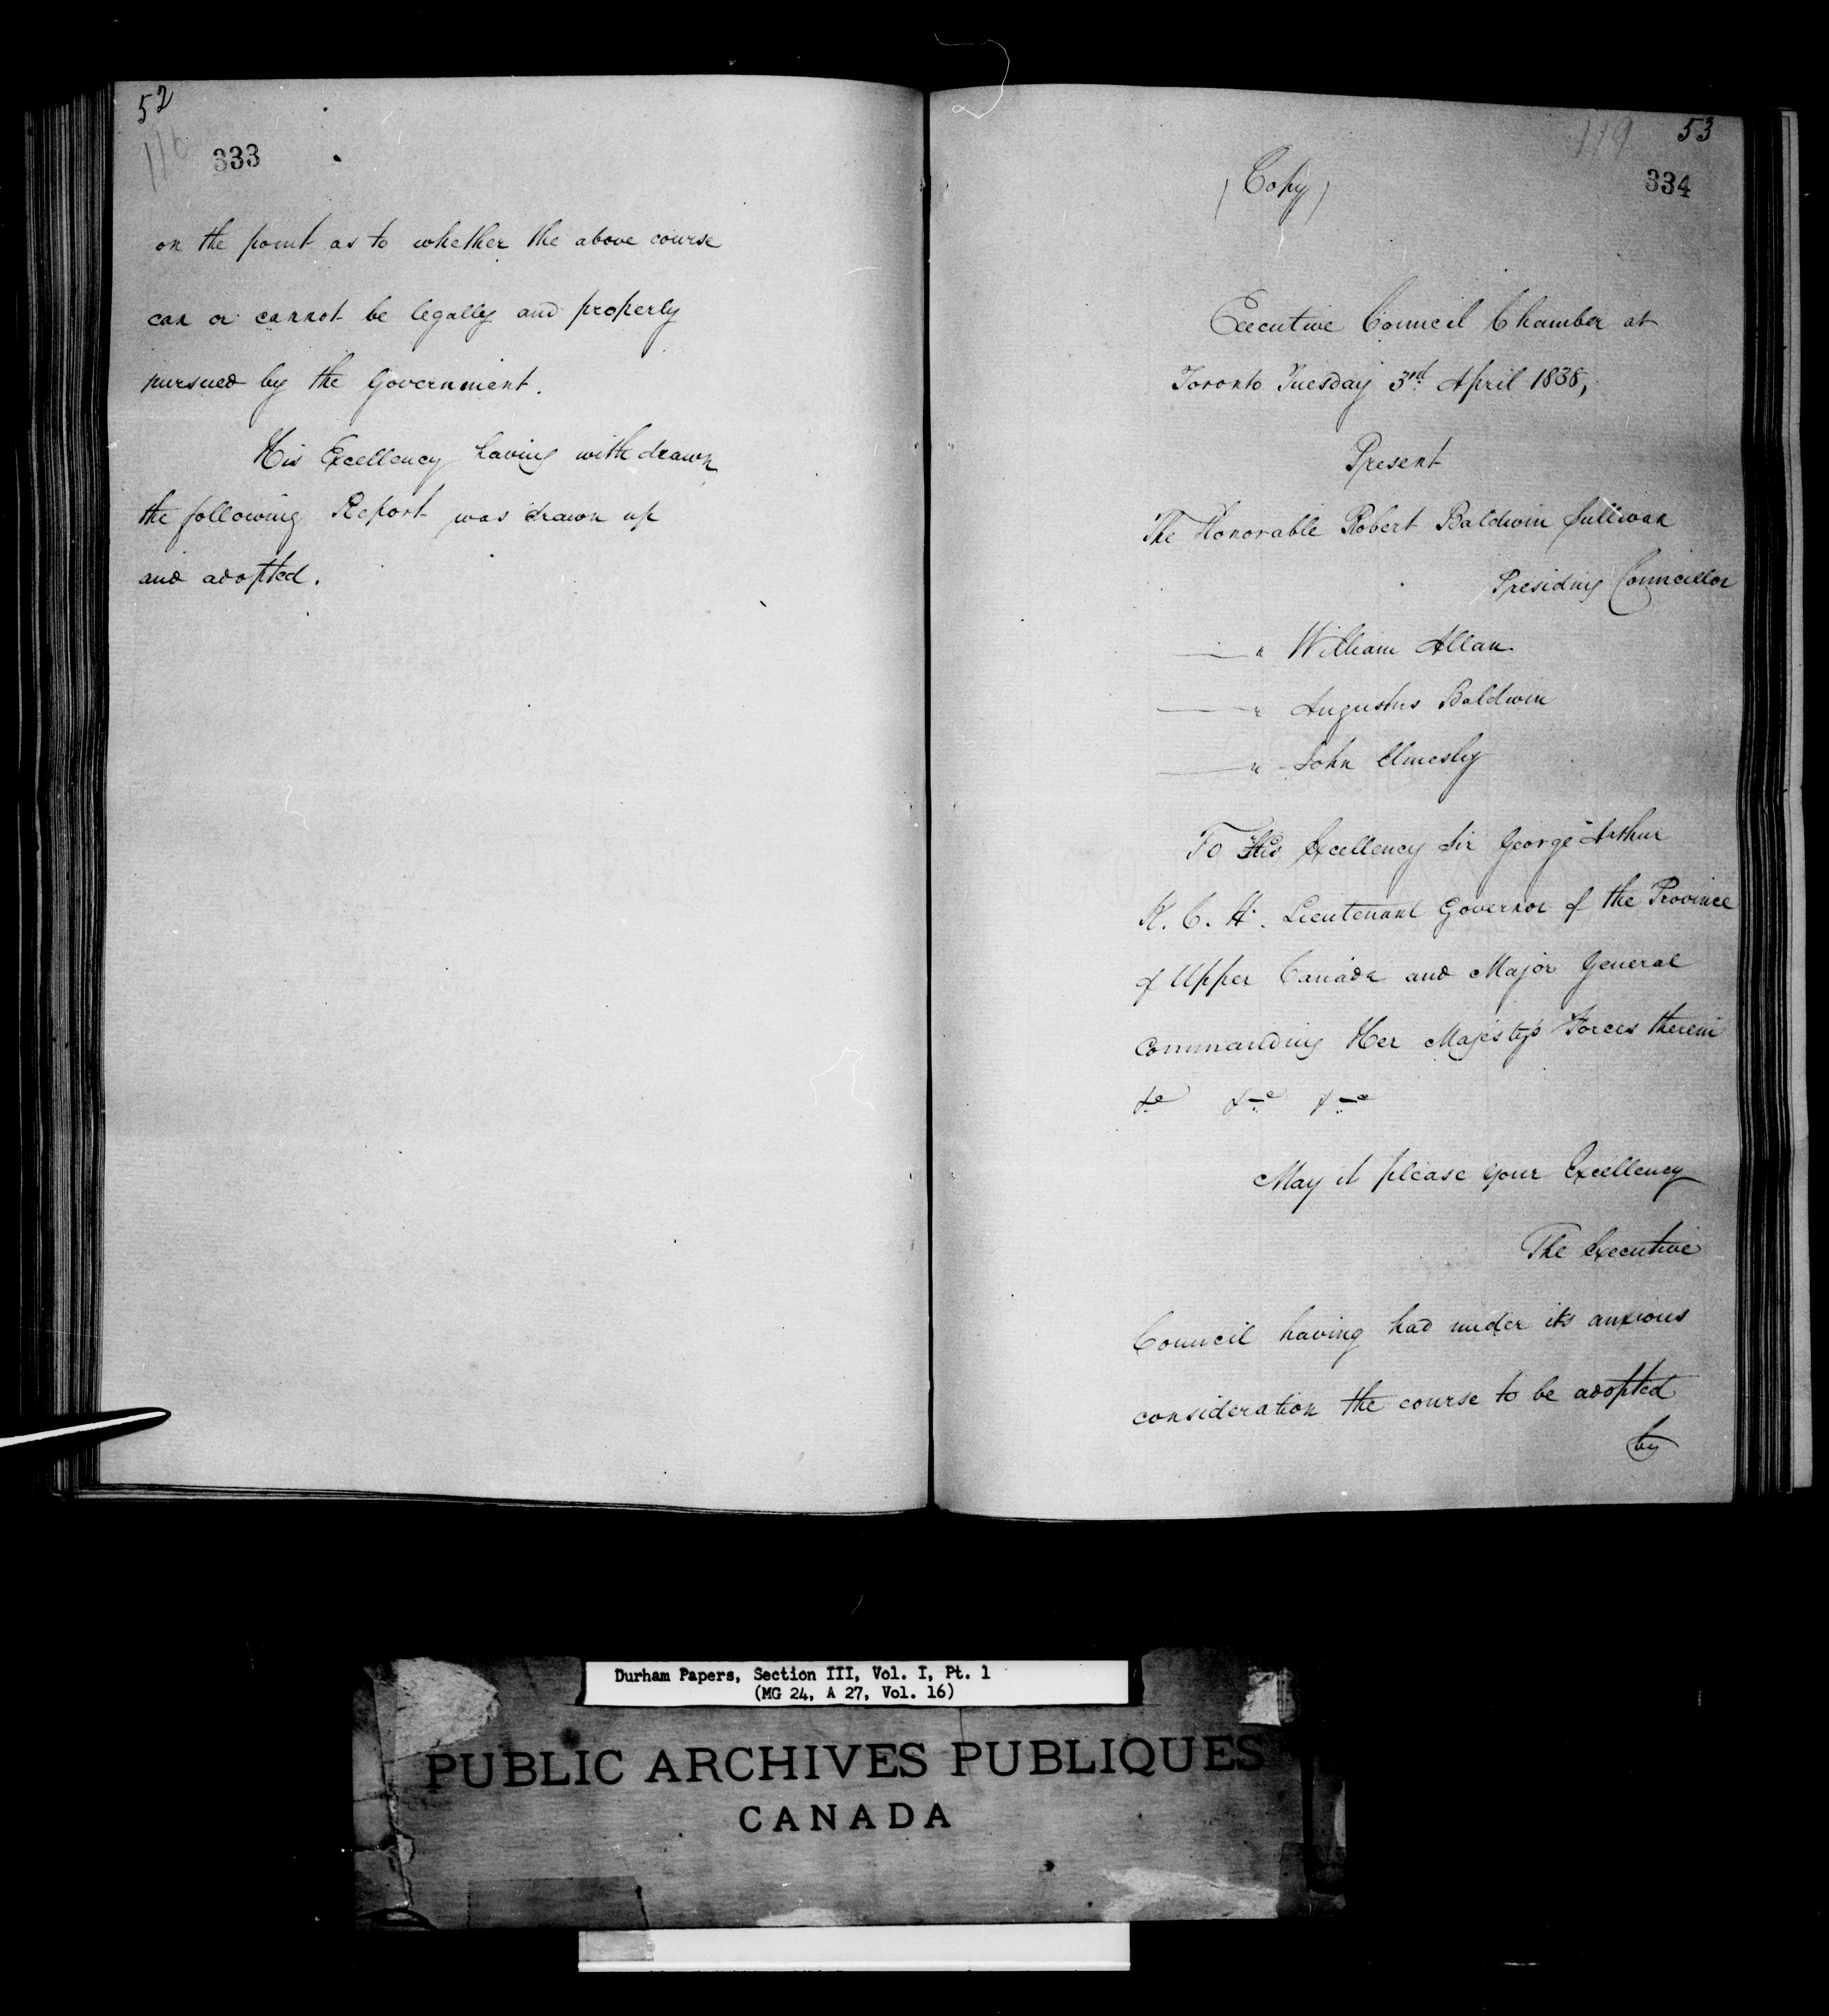 52
333
on the point as to whether the above course
can or cannot be legally and properly
pursued by the Government.
His Excellency having withdrawn
the following Report was drawn up
and adopted.
53
119
334
(Copy)
Executive Council Chamber at
Toronto Tuesday 3rd April 1838,
Present
The Honorable Robert Baldwin Sullivan
Presiding Councillor
——— " William Allan.
——— " Augustus Baldwin
——— " John Elmesley
To His Excellency Sir George Arthur
K. C. H. Lieutenant Governor of the Province
of Upper Canada and Major General
Commanding Her Majestys Forces therein
&c &c &c
May it please your Excellency
The Executive
Council having had under its anxious
consideration the course to be adopted
by
Durham Papers, Section III, Vol. I, Pt. 1
(MG 24, A 27, Vol. 16)
PUBLIC ARCHIVES PUBLIQUES
CANADA